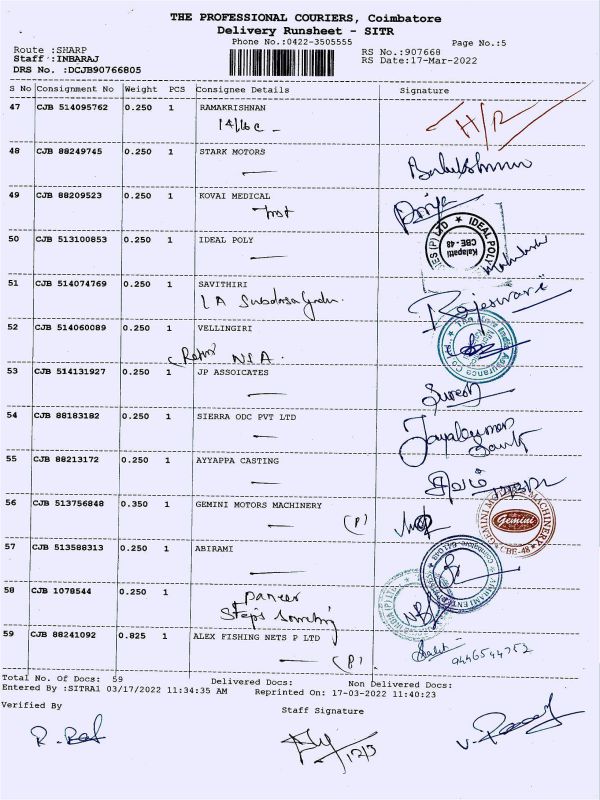 THE PROFESSIONAL COURIERS, Coimbatore
Delivery Runsheet - SITR
Phone No.:0422-3505555
Page No.:5
Route :SHARP
RS No.:907668
Staff :INBARAJ
RS Date:17-Mar-2022
DRS No. :DCJB90766805
S No Consignment No Weight PCS Consignee Details Signature
47 CJB 514095762 0.250 1 RAMAKRISHNAN
H/R
48 CJB 88249745 0.250 1 STARK MOTORS
49 CJB 88209523 0.250 1 KOVAI MEDICAL
Trust
Priya
50 CJB 513100853 0.250 1 IDEAL POLY
IDEAL POLY
Kalapatti
CBE - 48
51 CJB 514074769 0.250 1 SAVITHIRI
Rajeswari
52 CJB 514060089 0.250 1 VELLINGIRI
N S A.
53 CJB 514131927 0.250 1 JP ASSOICATES
Suresh
54 CJB 88183182 0.250 1 SIERRA ODC PVT LTD
Jayakumar
55 CJB 88213172 0.250 1 AYYAPPA CASTING
56 CJB 513756848 0.350 1 GEMINI MOTORS MACHINERY
(P)
Gemini
CBE-48
57 CJB 513588313 0.250 1 ABIRAMI
58 CJB 1078544 0.250 1
paneer
59 CJB 88241092 0.825 1 ALEX FISHING NETS P LTD
(P)
9446544752
Total No. Of Docs: 59 Delivered Docs: Non Delivered Docs:
Entered By :SITRA1 03/17/2022 11:34:35 AM Reprinted On: 17-03-2022 11:40:23
Verified By
Staff Signature